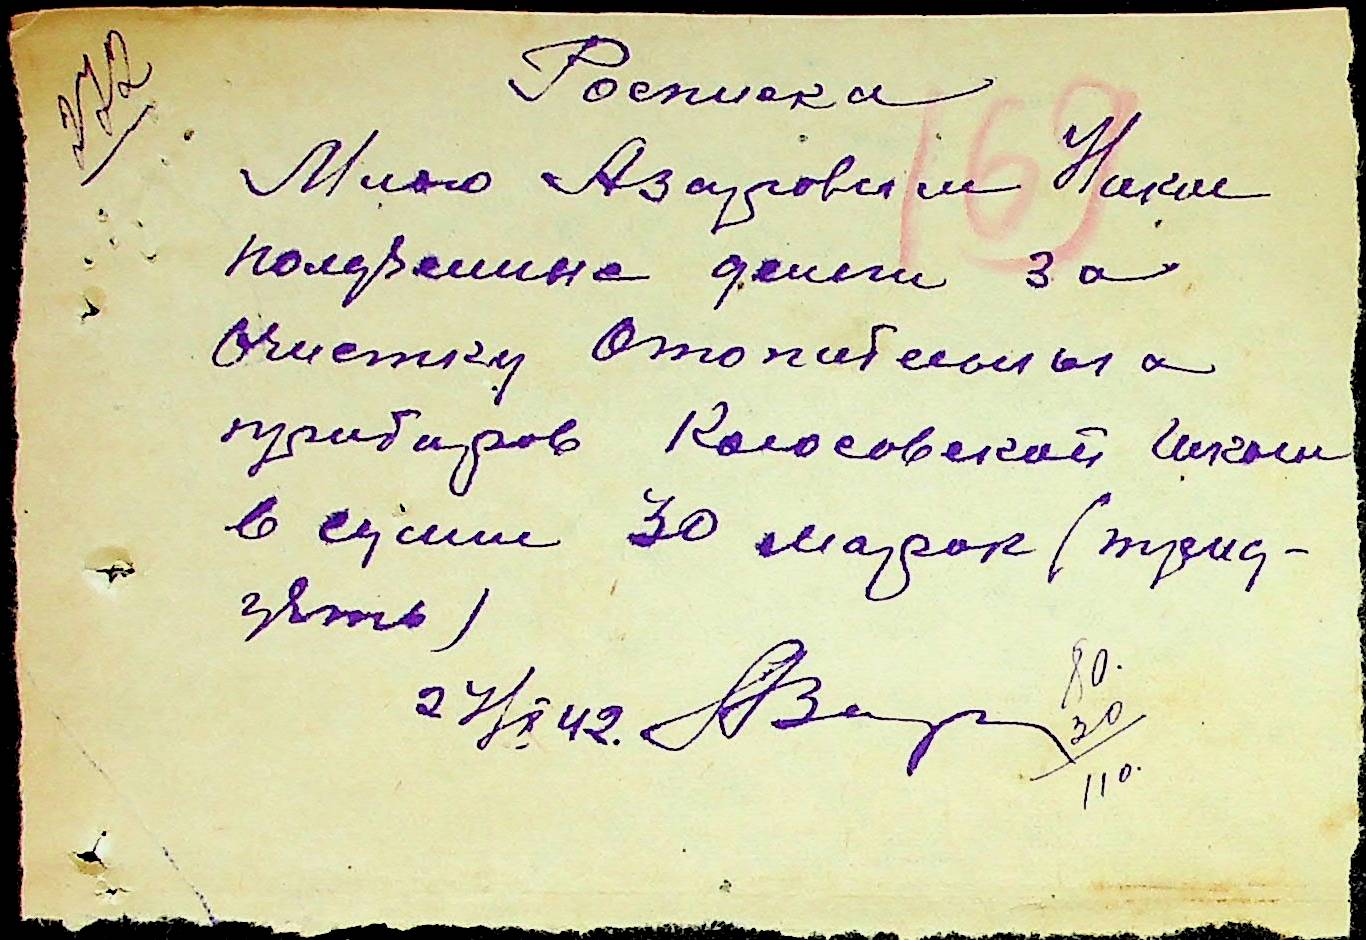 272
Росписка
169
Мною Азаровим
полученне деньги за
Очистку Отопительных
прибаров Колосовской школи
в сумми 30 марок (трид-
зять)
27/XI 42. Азар
80.
30
110.